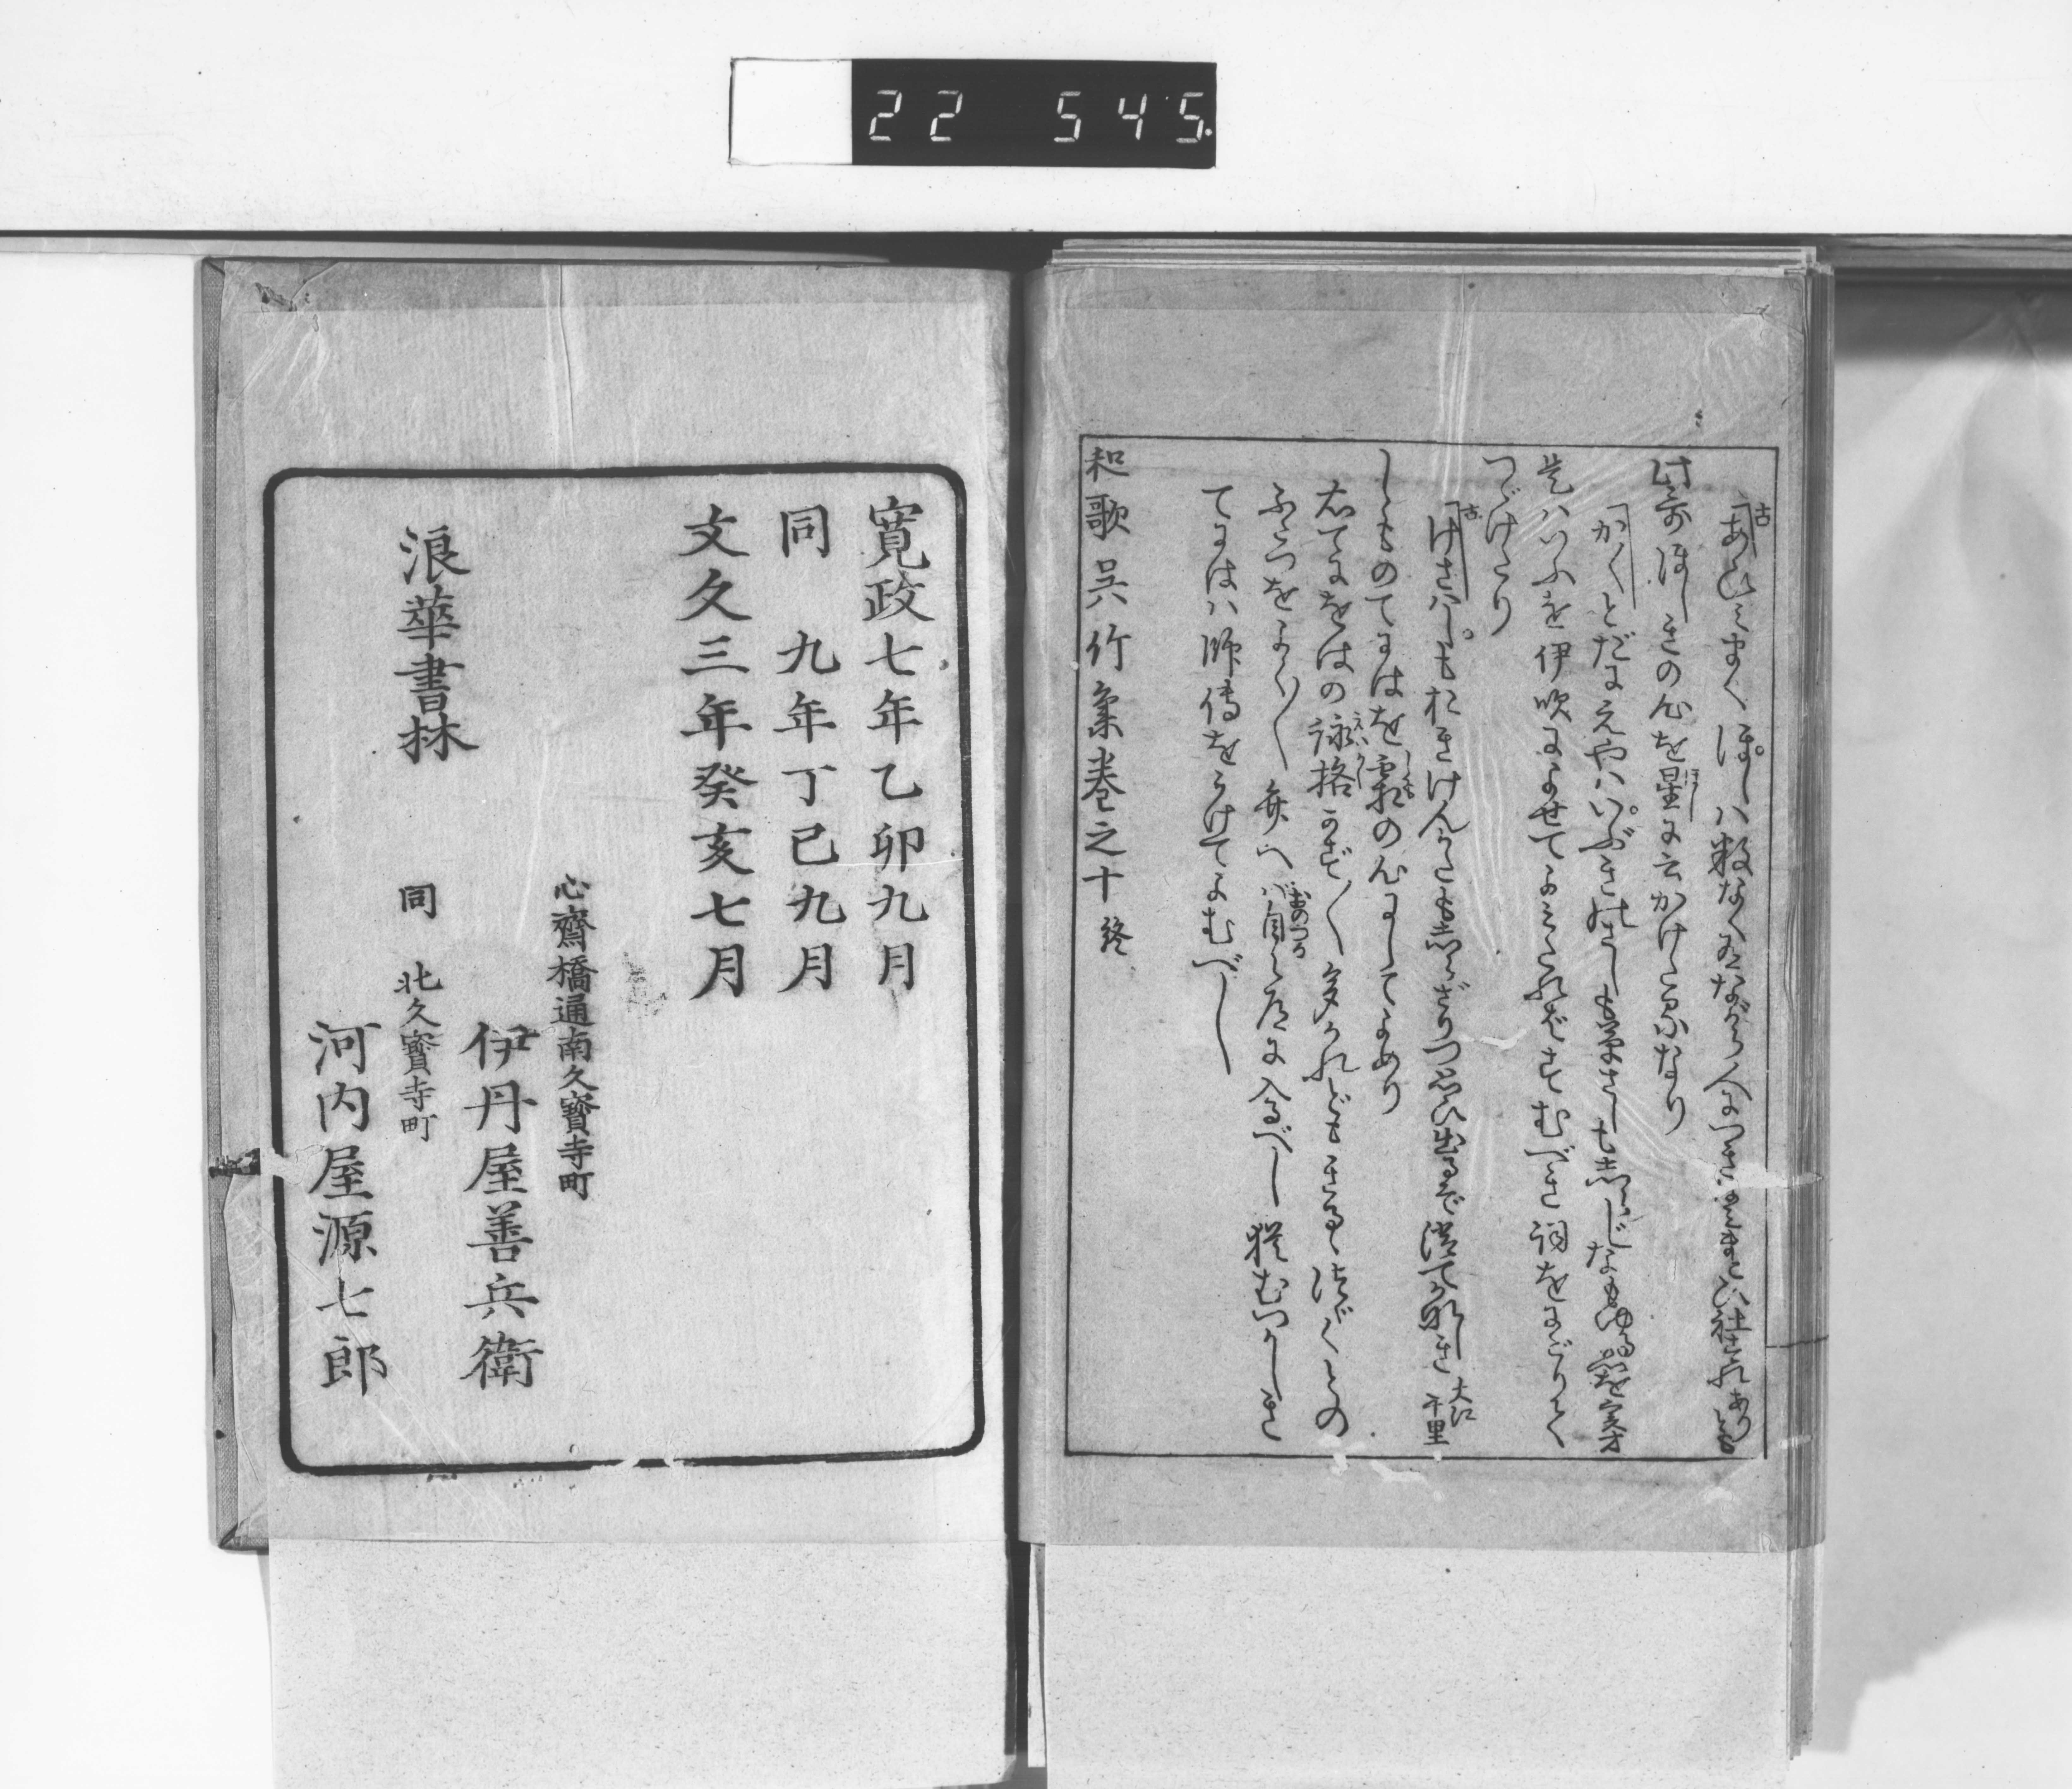 22 545.
古
あひみまくほしは数なく有ながら人につきなみまどひ社すれ
此哥ほしきの心を星に云かけたるなり
ほし
かくとだにえやはいぶきのさしも草さしもしらじなもゆる思ひを 実方
是はいふを伊吹によせてよみたればさむべき詞をにごりて
つゞけたり
古
けさはしもおきけん方もしらざりつ思ひ出るぞ消てかなしき 大江千里
しものてにはを霜の心にしてよめり
しも
右てにをはの詠格かず〱多かれどもさのみは
ふたつをよく〱弁へば自と道に入るべし猶むつかしき
おのづか
てにはは師傳をうけてよむべし
和歌呉竹集巻之十 終
寛政七年乙卯九月
同 九年丁巳九月
文久三年癸亥七月
心齋橋通南久寳寺町
伊丹屋善兵衛
浪華書林
同 北久寳寺町
河内屋源七郎